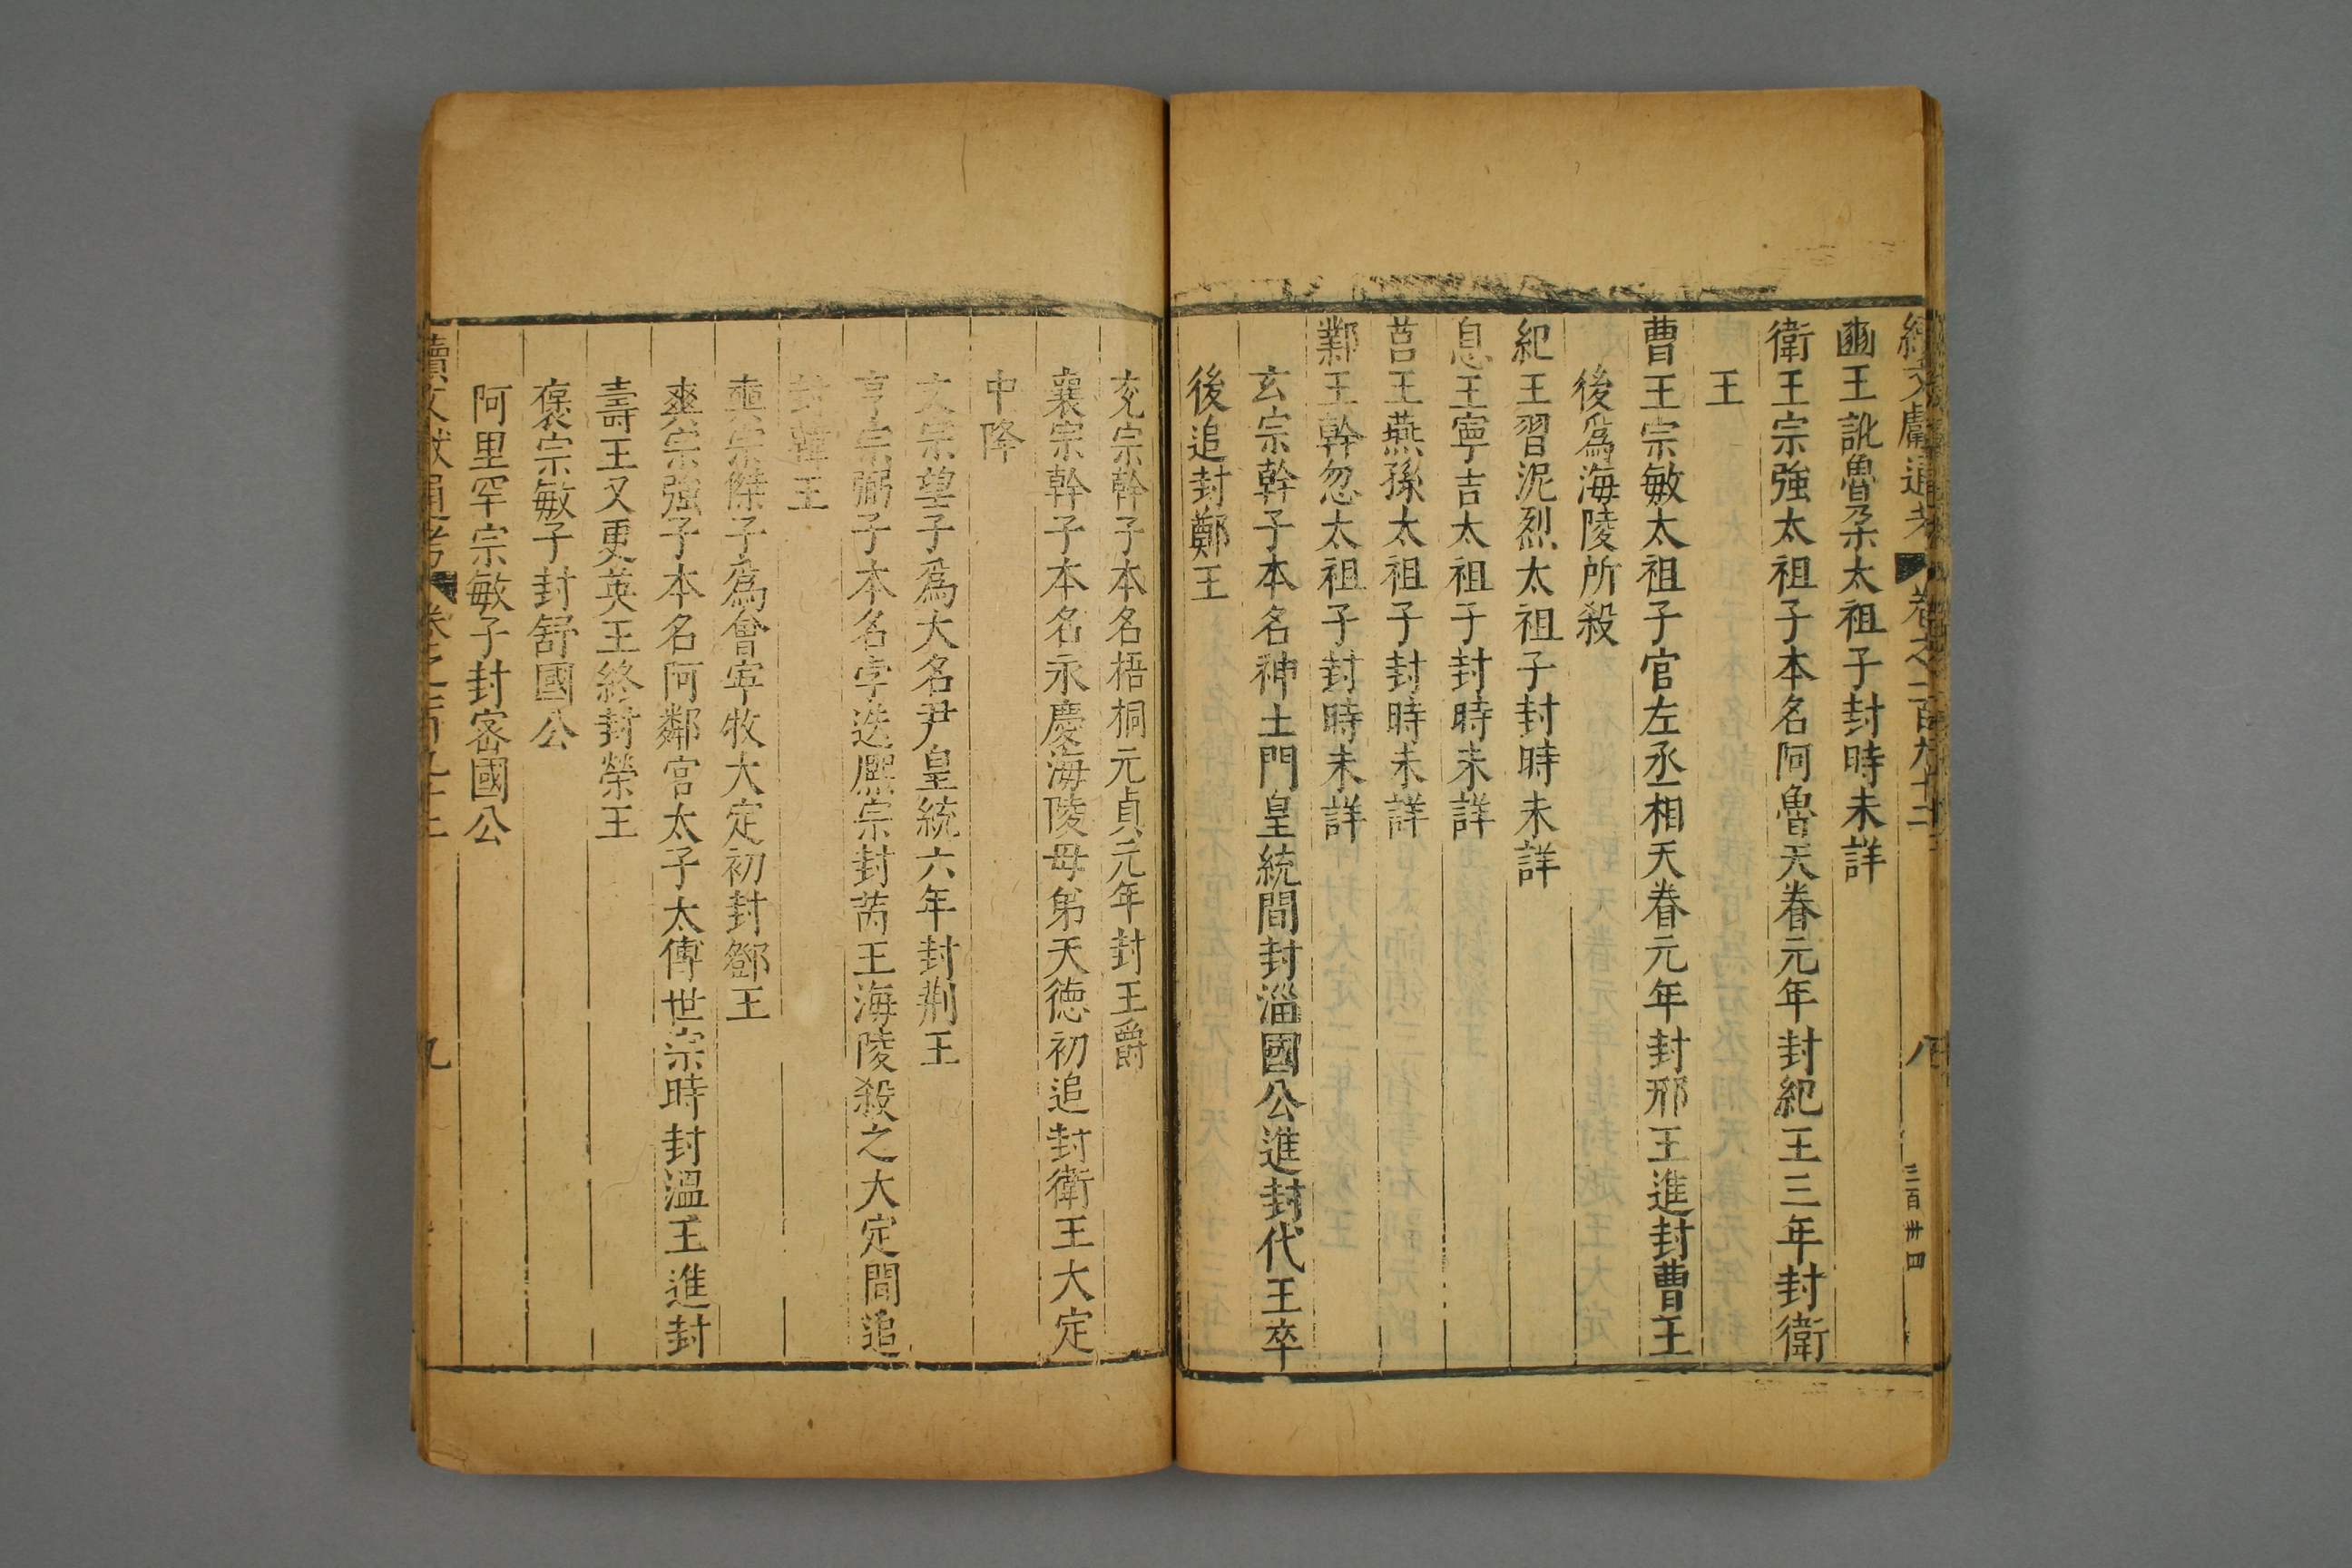 續文獻通考 卷之一百九十二 八 三百卅四
豳王訛魯朶太祖子封時未詳
衛王宗強太祖子本名阿魯天眷元年封紀王三年封衛
王
曹王宗敏太祖子官左丞相天眷元年封邢王進封曹王
後爲海陵所殺
紀王習泥烈太祖子封時未詳
息王寧吉太祖子封時未詳
莒王燕孫太祖子封時未詳
鄴王幹忽太祖子封時未詳
玄宗幹子本名神土門皇統間封淄國公進封代王卒
後追封鄭王
兗宗幹子本名梧桐元貞元年封王爵
襄宗幹子本名永慶海陵母弟天德初追封衛王大定
中降
文宗望子爲大名尹皇統六年封荆王
亨宗弼子本名孛迭熈宗封芮王海陵殺之大定間追
封韓王
奭宗傑子爲會寧牧大定初封鄧王
爽宗強子本名阿鄰官太子太傅世宗時封溫王進封
壽王又更英王終封榮王
褒宗敏子封舒國公
阿里罕宗敏子封密國公
續文獻通考 卷之一百九十二 九